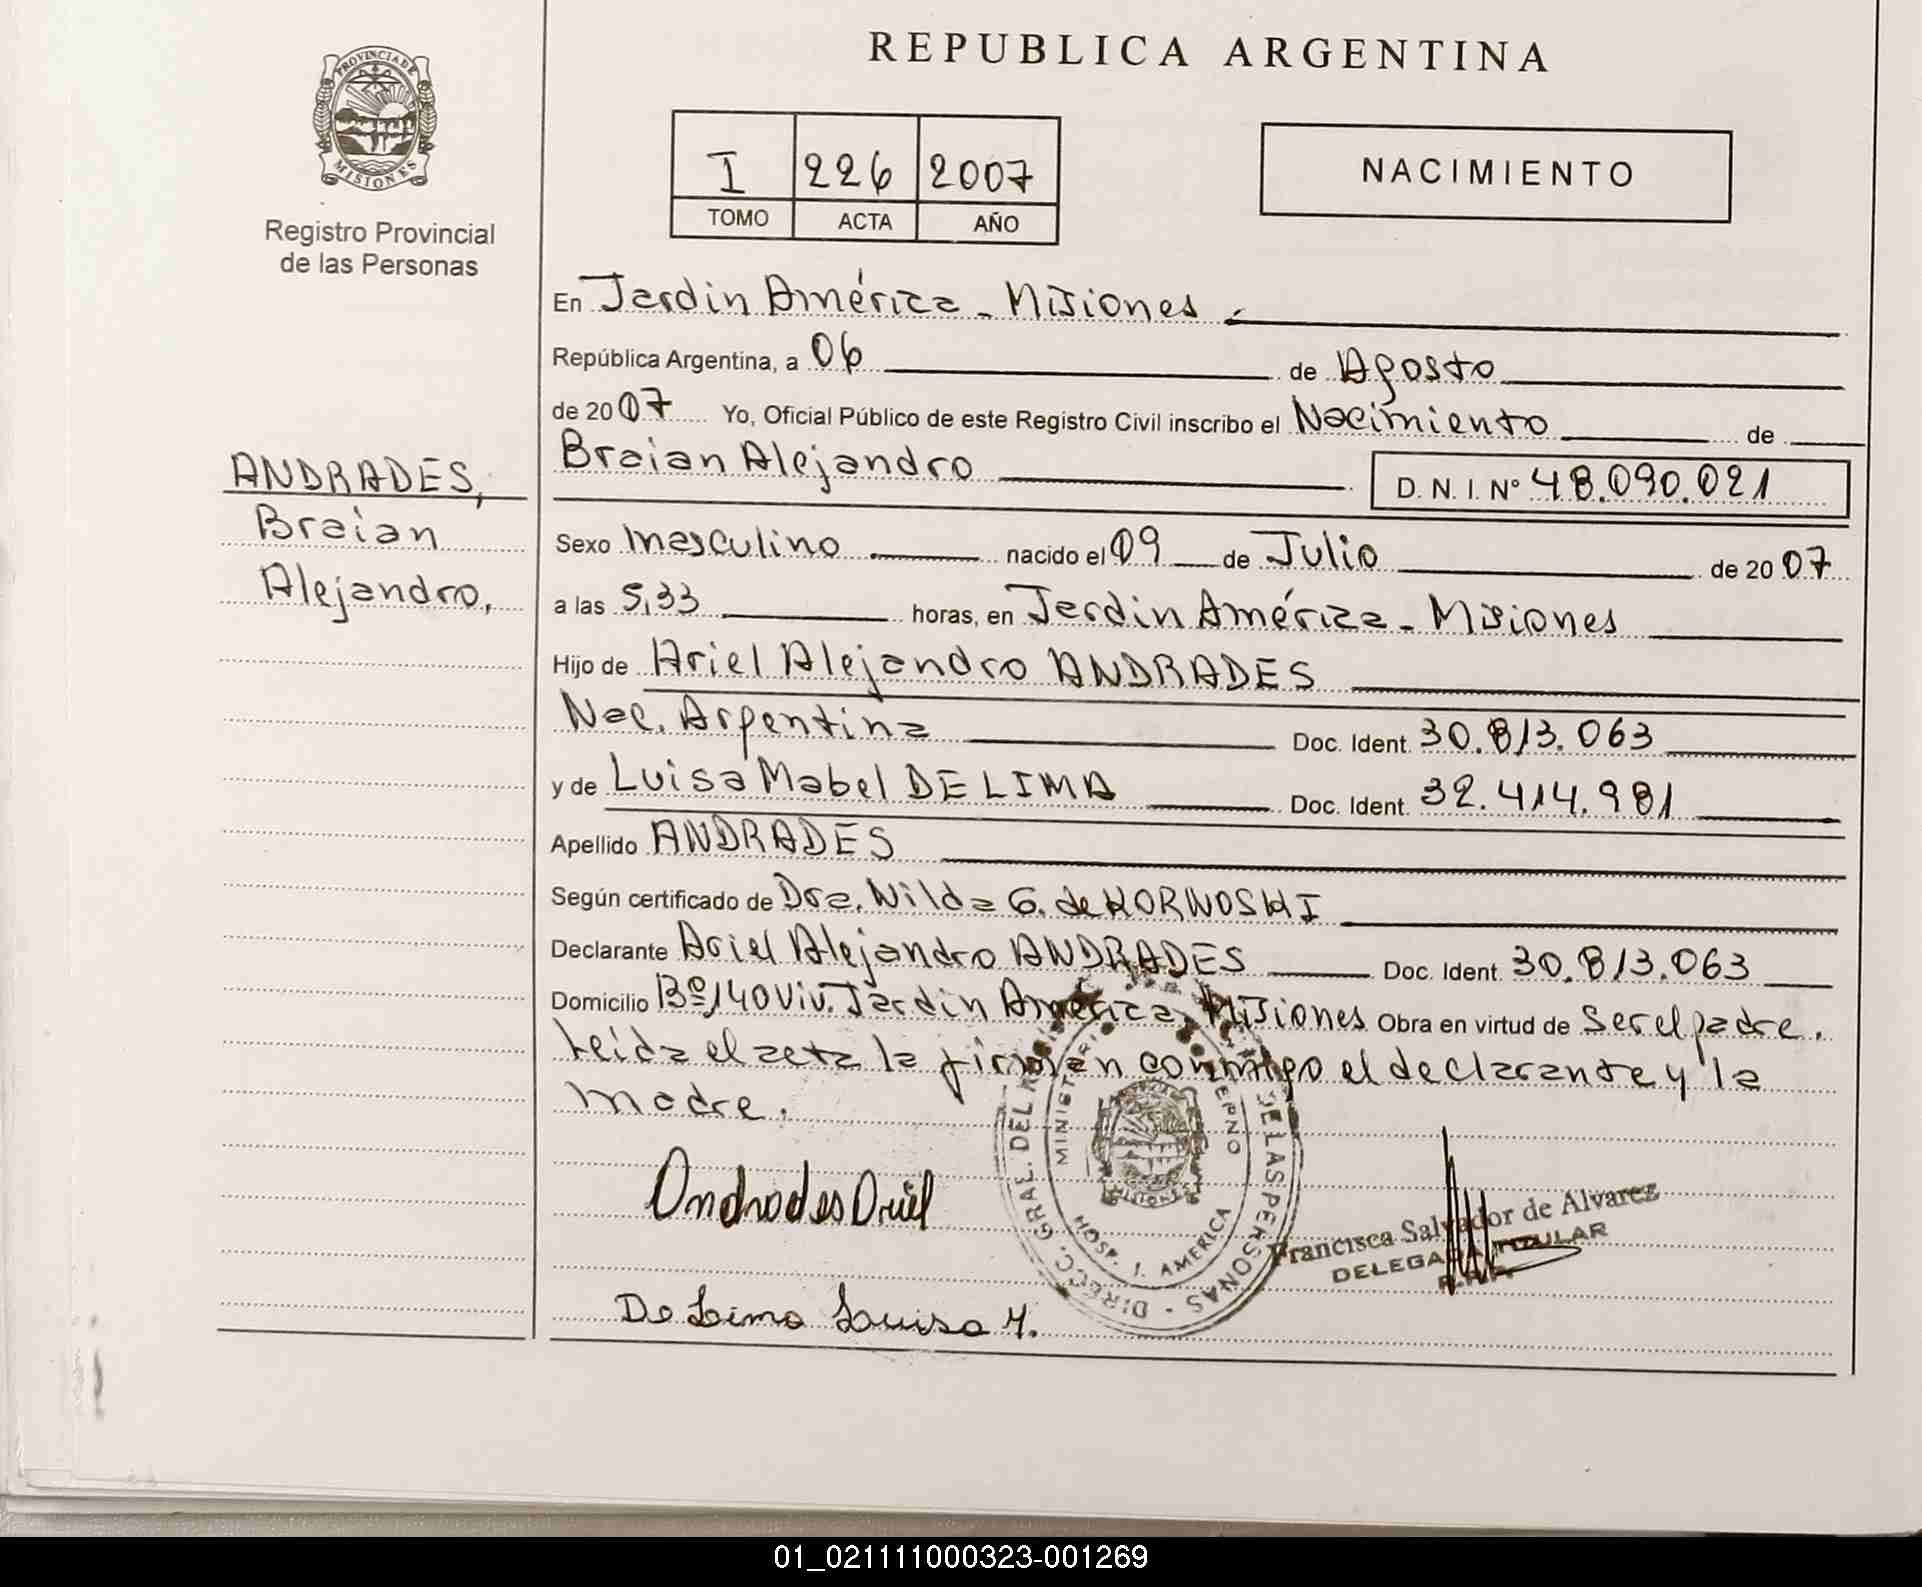 REPUBLICA ARGENTINA
PROVINCIA DE
MISIONES
Registro Provincial
de las Personas
I 226 2007
TOMO ACTA AÑO
NACIMIENTO
ANDRADES,
Braian
Alejandro,
En Jardin América - Misiones.
República Argentina, a 06 de Agosto
de 2007 Yo, Oficial Público de este Registro Civil inscribo el Nacimiento de
Braian Alejandro D. N. I. Nº 48.090.021
Sexo masculino nacido el 09 de Julio de 2007
a las 5,33 horas, en Jardin América - Misiones
Hijo de Ariel Alejandro ANDRADES
Nac. Argentina Doc. Ident. 30.813.063
y de Luisa Mabel DE LIMA Doc. Ident. 32.414.981
Apellido ANDRADES
Según certificado de Dra. Nilda G. de KORNOSKI
Declarante Ariel Alejandro ANDRADES Doc. Ident. 30.813.063
Domicilio Bº 140 Viv. Jardin América, Misiones Obra en virtud de ser el padre.
Leída el acta la firman conmigo el declarante y la
madre.
Andrades Ariel
De Lima Luisa M.
DIRECC. GRAL. DEL DE LAS PERSONAS
HOSP. J. AMERICA
MISIONES
Francisca Salvador de Alvarez
DELEGADA TITULAR
R.P.P.
01_021111000323-001269